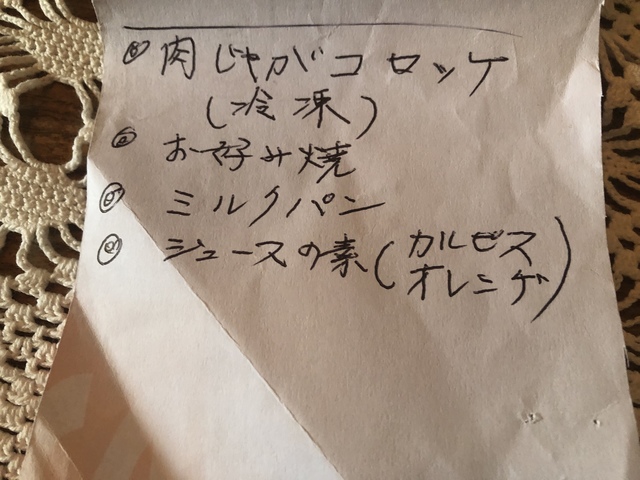 ◎ 肉じゃがコロッケ
(冷凍)
◎ お好み焼
◎ ミルクパン
◎ ジュースの素(カルピス
オレンヂ)